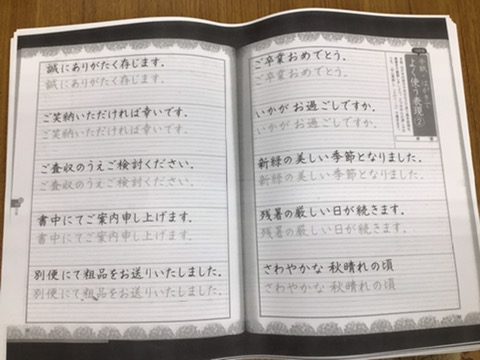 手紙・はがきで
よく使う表現②
ご卒業おめでとう。
ご卒業おめでとう。
いかがお過ごしですか。
いかがお過ごしですか。
新緑の美しい季節となりました。
新緑の美しい季節となりました。
残暑の厳しい日が続きます。
残暑の厳しい日が続きます。
さわやかな秋晴れの頃
さわやかな秋晴れの頃
誠にありがたく存じます。
誠にありがたく存じます。
ご笑納いただければ幸いです。
ご笑納いただければ幸いです。
ご査収のうえご検討ください。
ご査収のうえご検討ください。
書中にてご案内申し上げます。
書中にてご案内申し上げます。
別便にて粗品をお送りいたしました。
別便にて粗品をお送りいたしました。